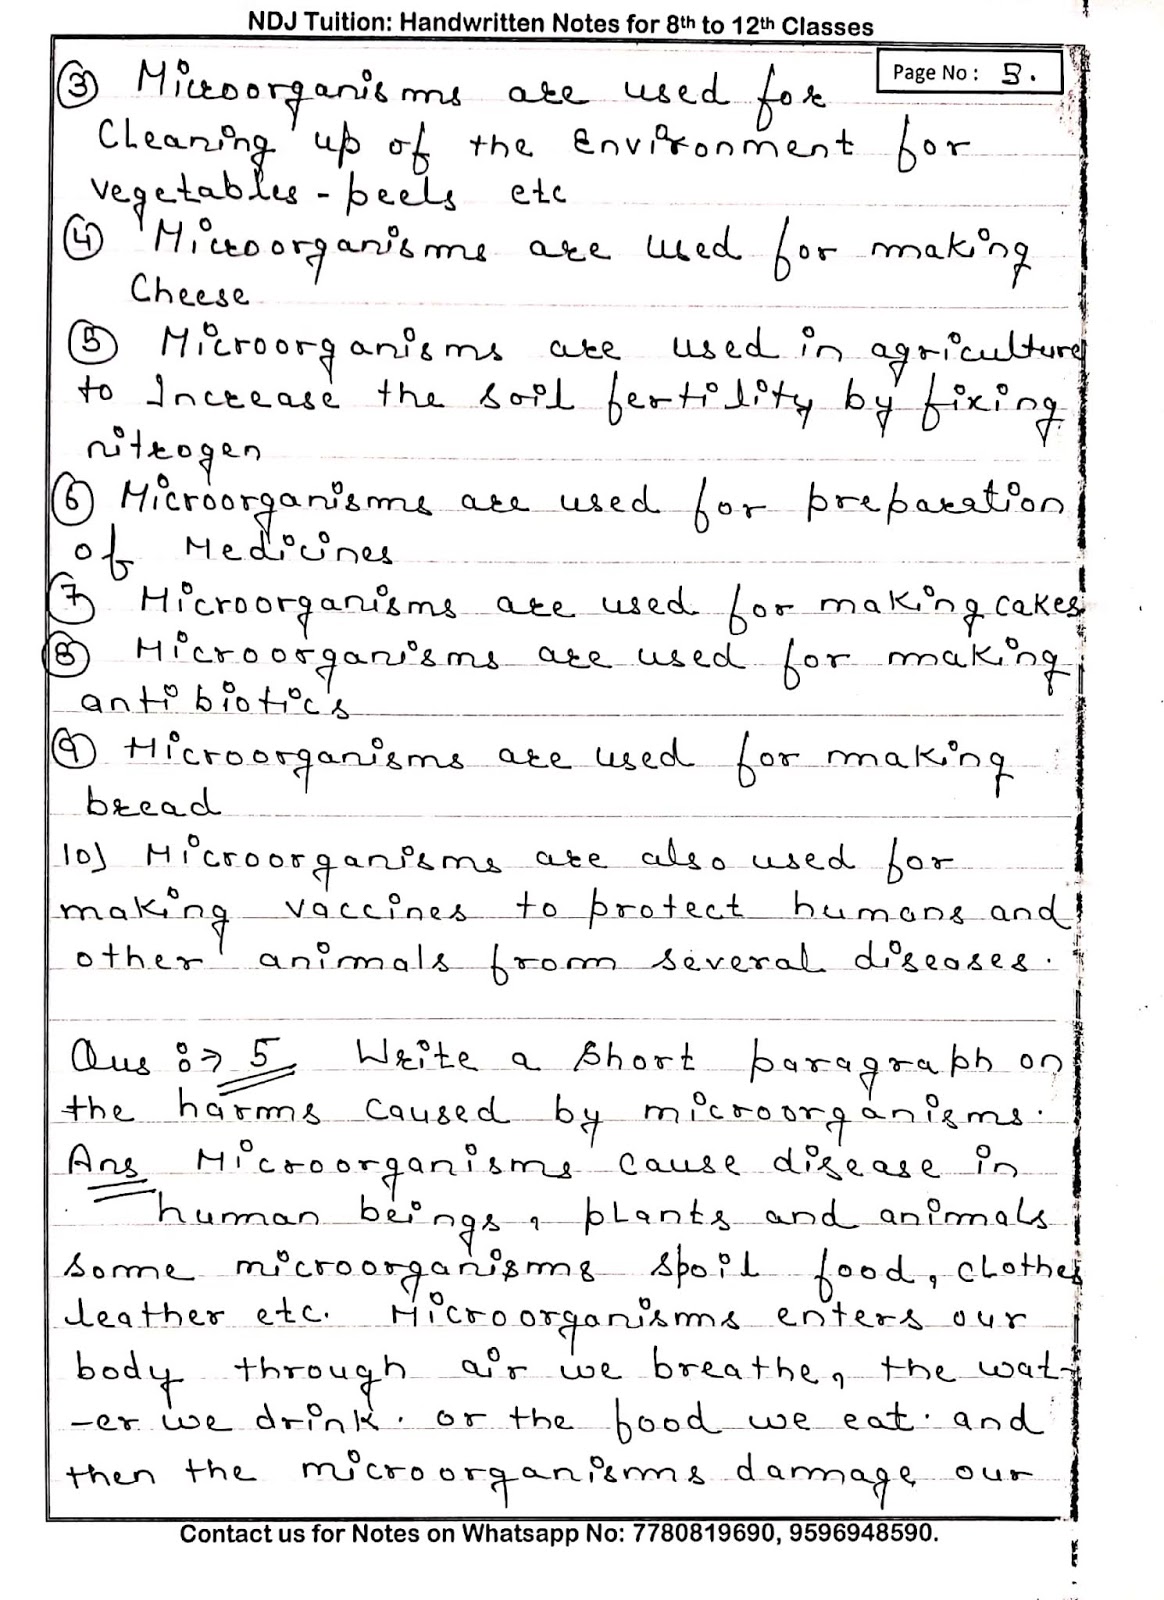 NDJ Tuition: Handwritten Notes for 8th to 12th Classes
Page No : 5.
③ Microorganisms are used for
Cleaning up of the Environment for
vegetables - peels etc
④ Microorganisms are used for making
Cheese
⑤ Microorganisms are used in agriculture
to Increase the soil fertility by fixing
nitrogen
⑥ Microorganisms are used for preparation
of Medicines
⑦ Microorganisms are used for making cakes
⑧ Microorganisms are used for making
antibiotics
⑨ Microorganisms are used for making
bread
10) Microorganisms are also used for
making vaccines to protect humans and
other animals from several diseases.
Qus :→ 5 Write a short paragraph on
the harms caused by microorganisms.
Ans Microorganisms cause disease in
human beings, plants and animals
some microorganisms spoil food, clothes
leather etc. Microorganisms enters our
body through air we breathe, the wat-
-er we drink. or the food we eat. and
then the microorganisms damage our
Contact us for Notes on Whatsapp No: 7780819690, 9596948590.